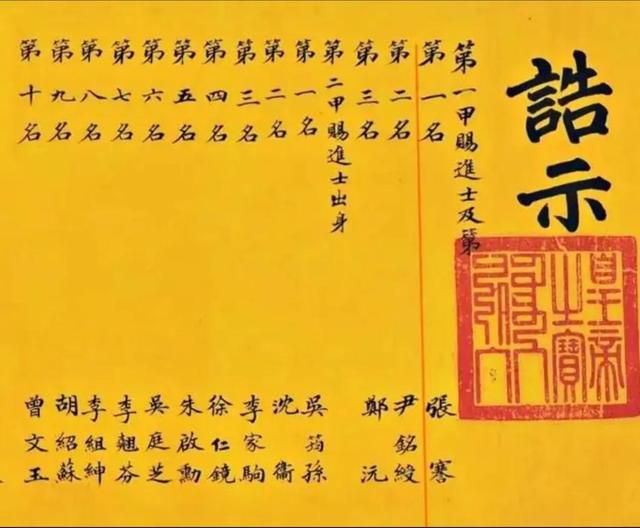 誥示
皇帝之寶
第一甲賜進士及第
第一名 張謇
第二名 尹銘綬
第三名 鄭沅
第二甲賜進士出身
第一名 吳筠孫
第二名 沈衛
第三名 李家駒
第四名 徐仁鏡
第五名 朱啟勳
第六名 吳庭芝
第七名 李翹芬
第八名 李組紳
第九名 胡紹蘇
第十名 曾文玉